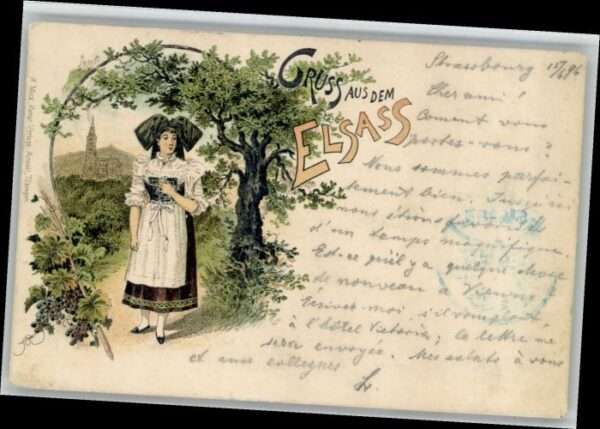 GRUSS AUS DEM
ELSASS
Strassbourg 15/6 96
Cher ami!
Coment vous
portez-vous?
Nous sommes parfai-
tement bien. Jusqu'ici
nous étions favorisés
d'un temps magnifique.
Est-ce qu'il y a quelque chose
de nouveau à Vienne
Ecrivez-moi, s'il vous plaît,
à l'hôtel Victoria; la lettre me
sera envoyée. Mes saluts à vous
et aux collegues
L.